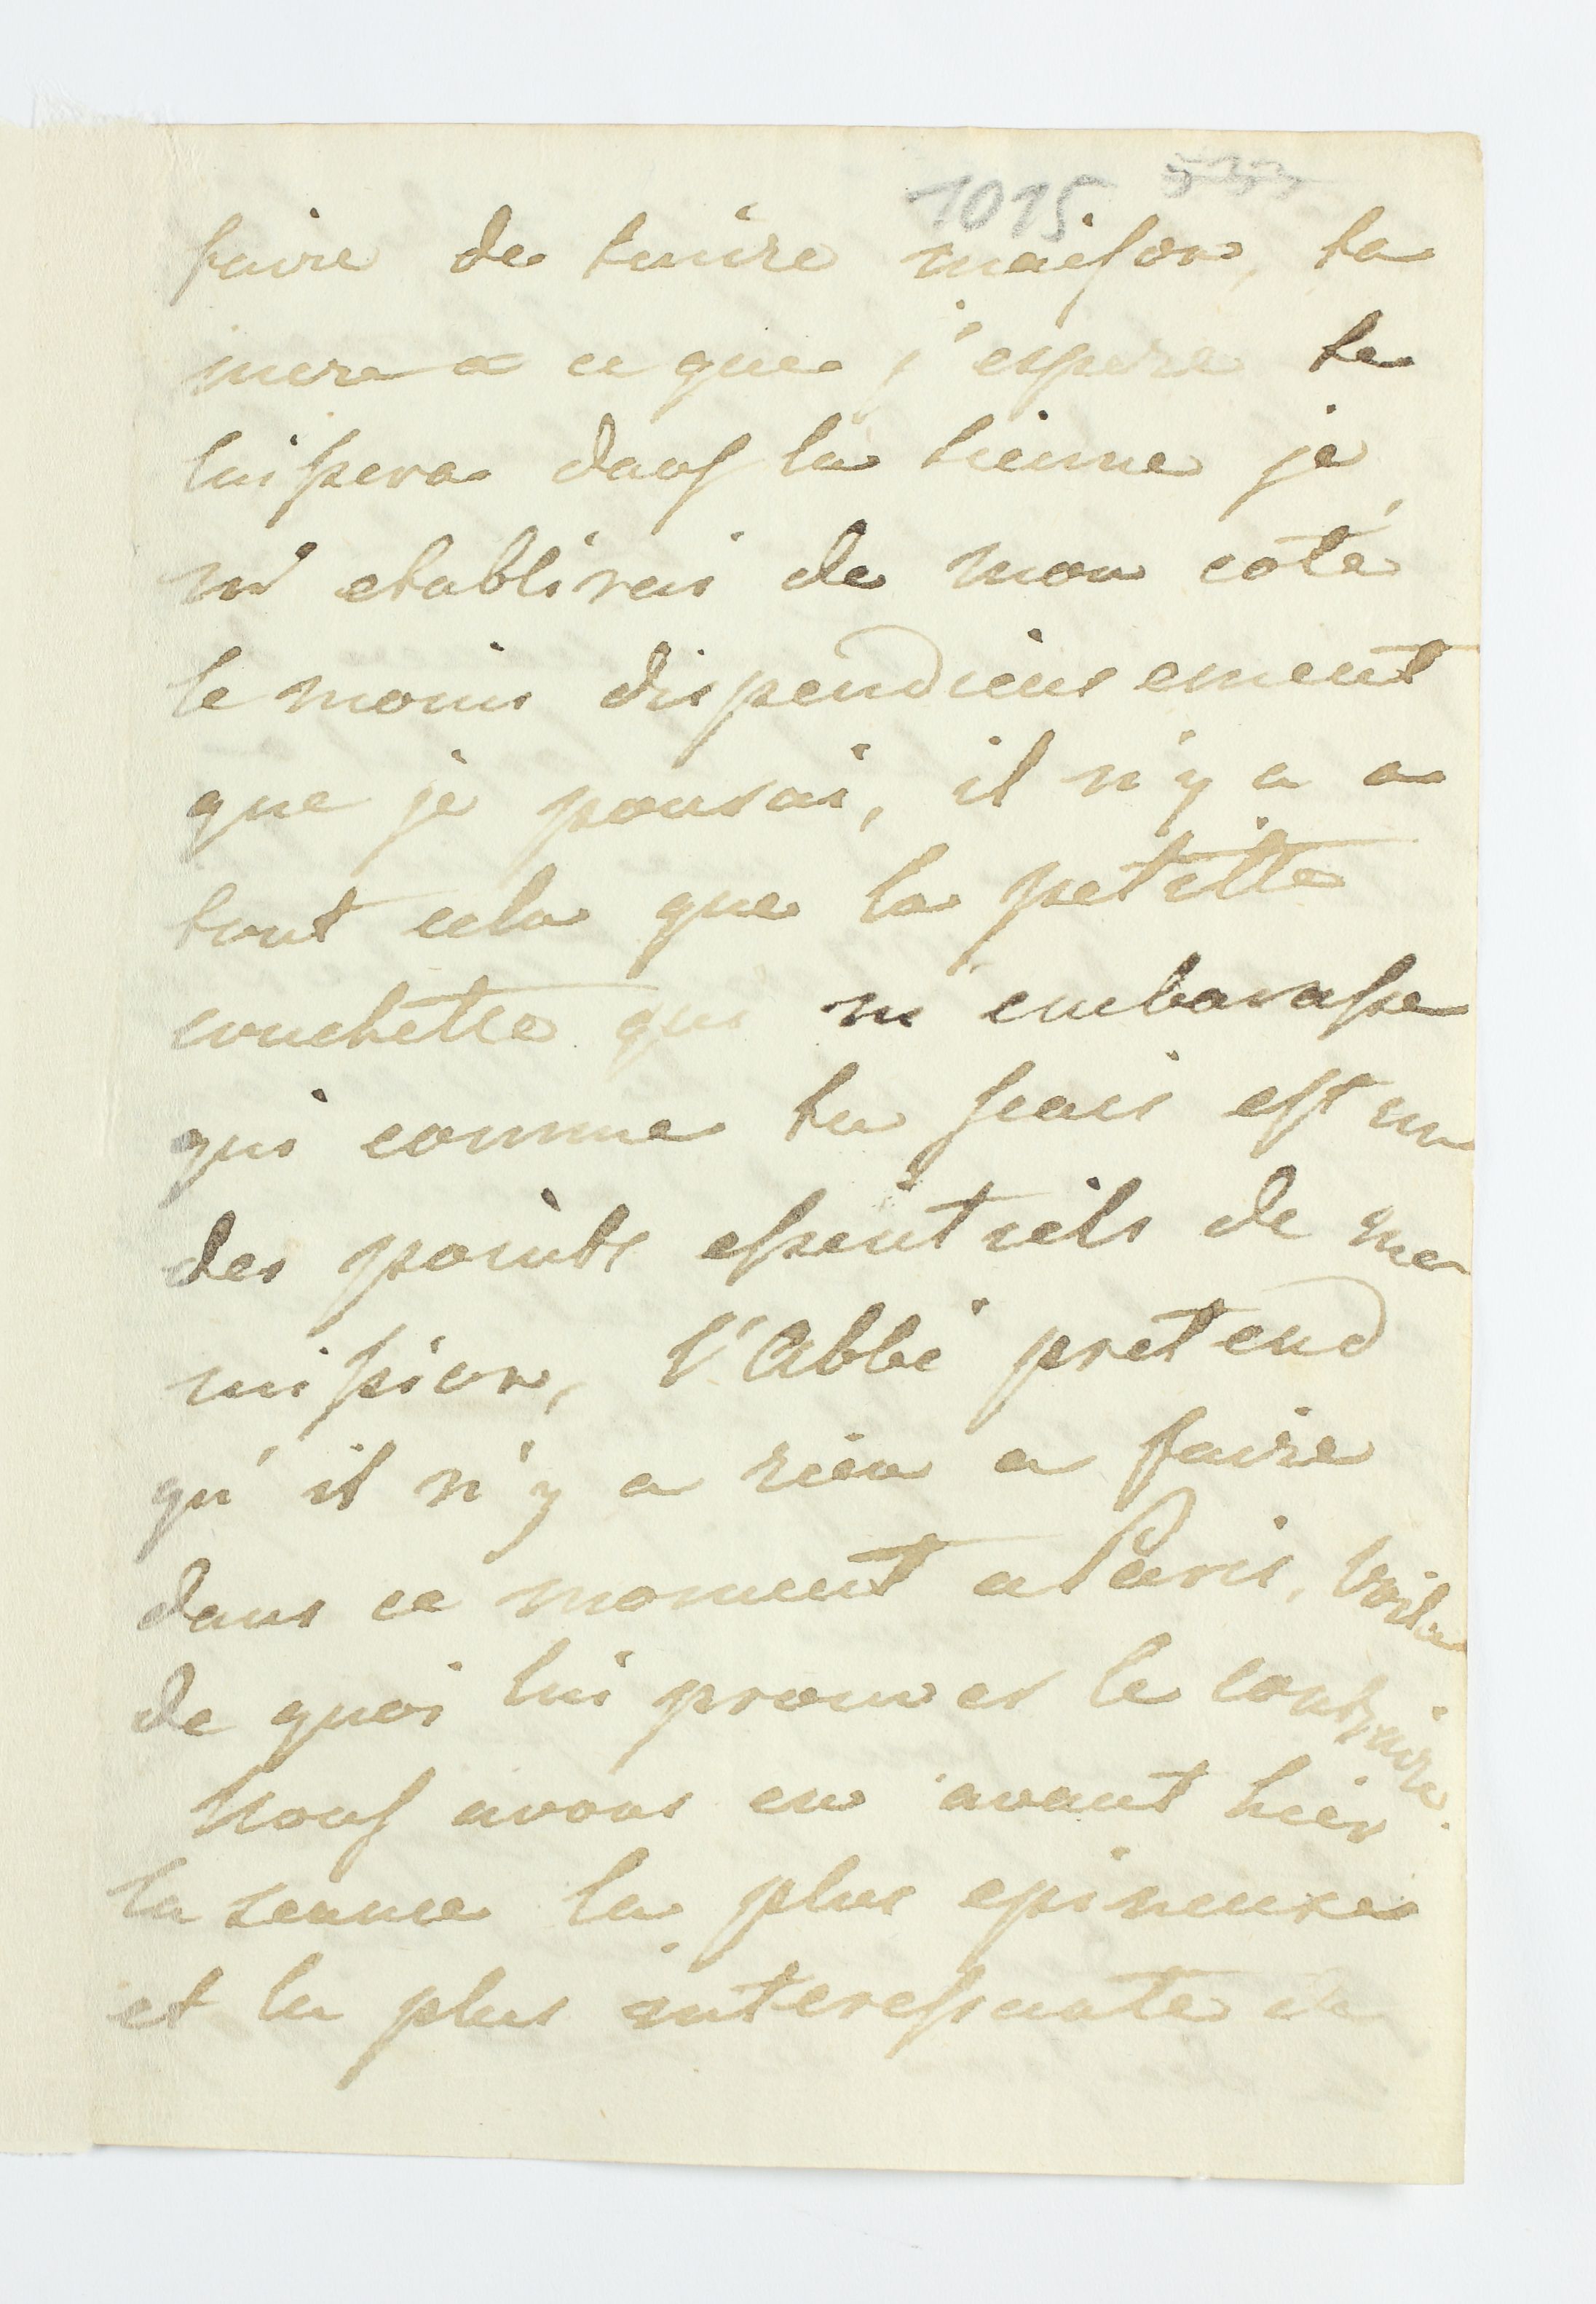 1015
faire de maison, ta
mere a ce que j'espere te
laissera dans la tienne je
m'etablirai de mon coté
le moins dispendieusement
que je pourai, il n'y a a
tout cela que la petitte
couchette qui m'embarasse
qui comme tu scais est un
des points essentiels de ma
mission, l'Abbé pretend
qu'il n'y a rien a faire
dans ce moment a Paris, voila
de quoi lui prouver le contraire.
Nous avons eu avant hier
la seance la plus epineuse
et la plus interessante de